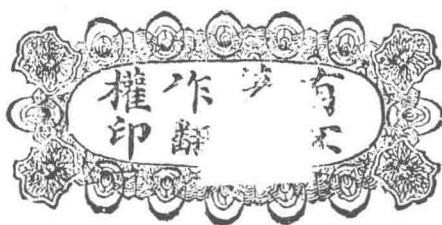 有作權
不翻印